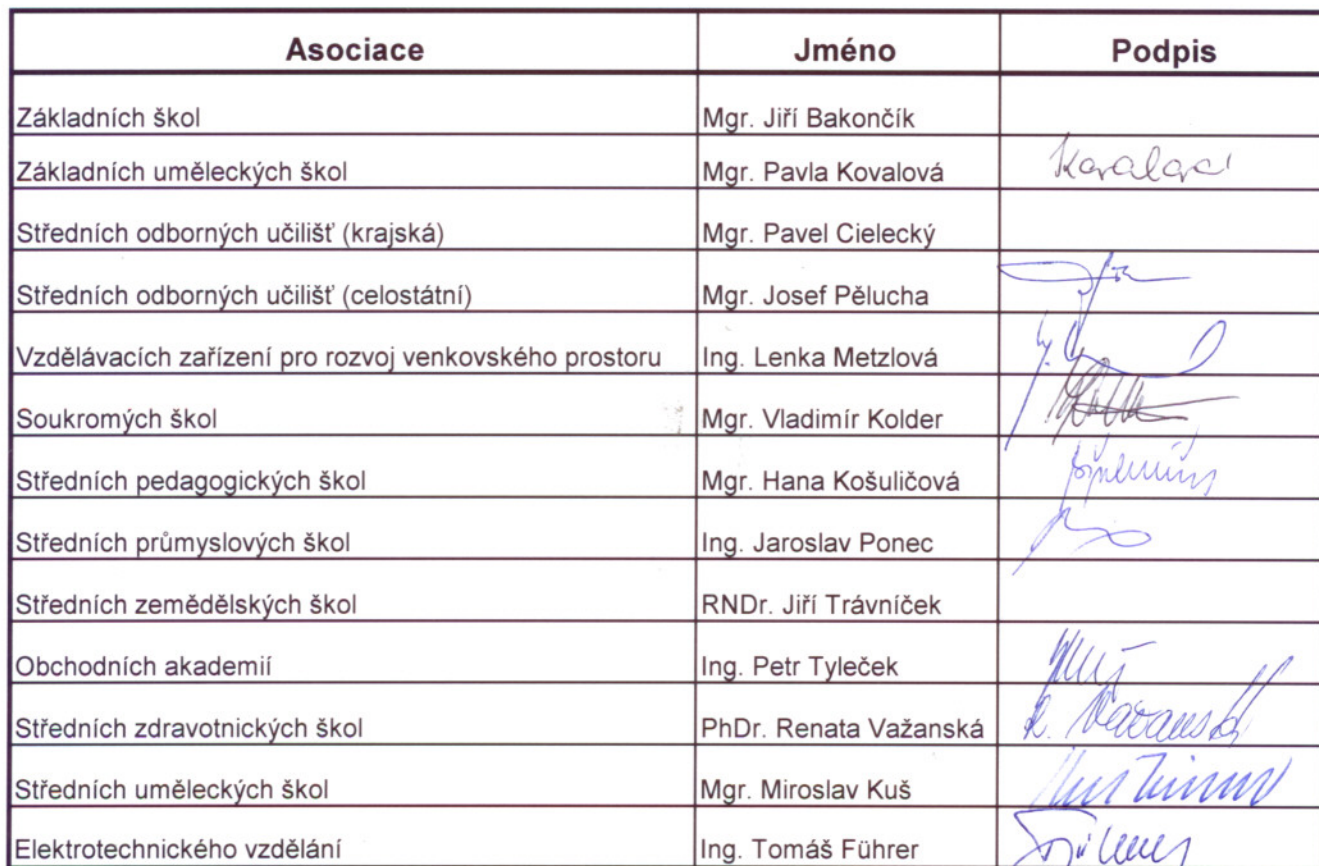 Asociace Jméno Podpis
Základních škol Mgr. Jiří Bakončík
Základních uměleckých škol Mgr. Pavla Kovalová Kovalová
Středních odborných učilišť (krajská) Mgr. Pavel Cielecký
Středních odborných učilišť (celostátní) Mgr. Josef Pělucha
Vzdělávacích zařízení pro rozvoj venkovského prostoru Ing. Lenka Metzlová
Soukromých škol Mgr. Vladimír Kolder
Středních pedagogických škol Mgr. Hana Košuličová
Středních průmyslových škol Ing. Jaroslav Ponec
Středních zemědělských škol RNDr. Jiří Trávníček
Obchodních akademií Ing. Petr Tyleček
Středních zdravotnických škol PhDr. Renata Važanská R. Važanská
Středních uměleckých škol Mgr. Miroslav Kuš
Elektrotechnického vzdělání Ing. Tomáš Führer